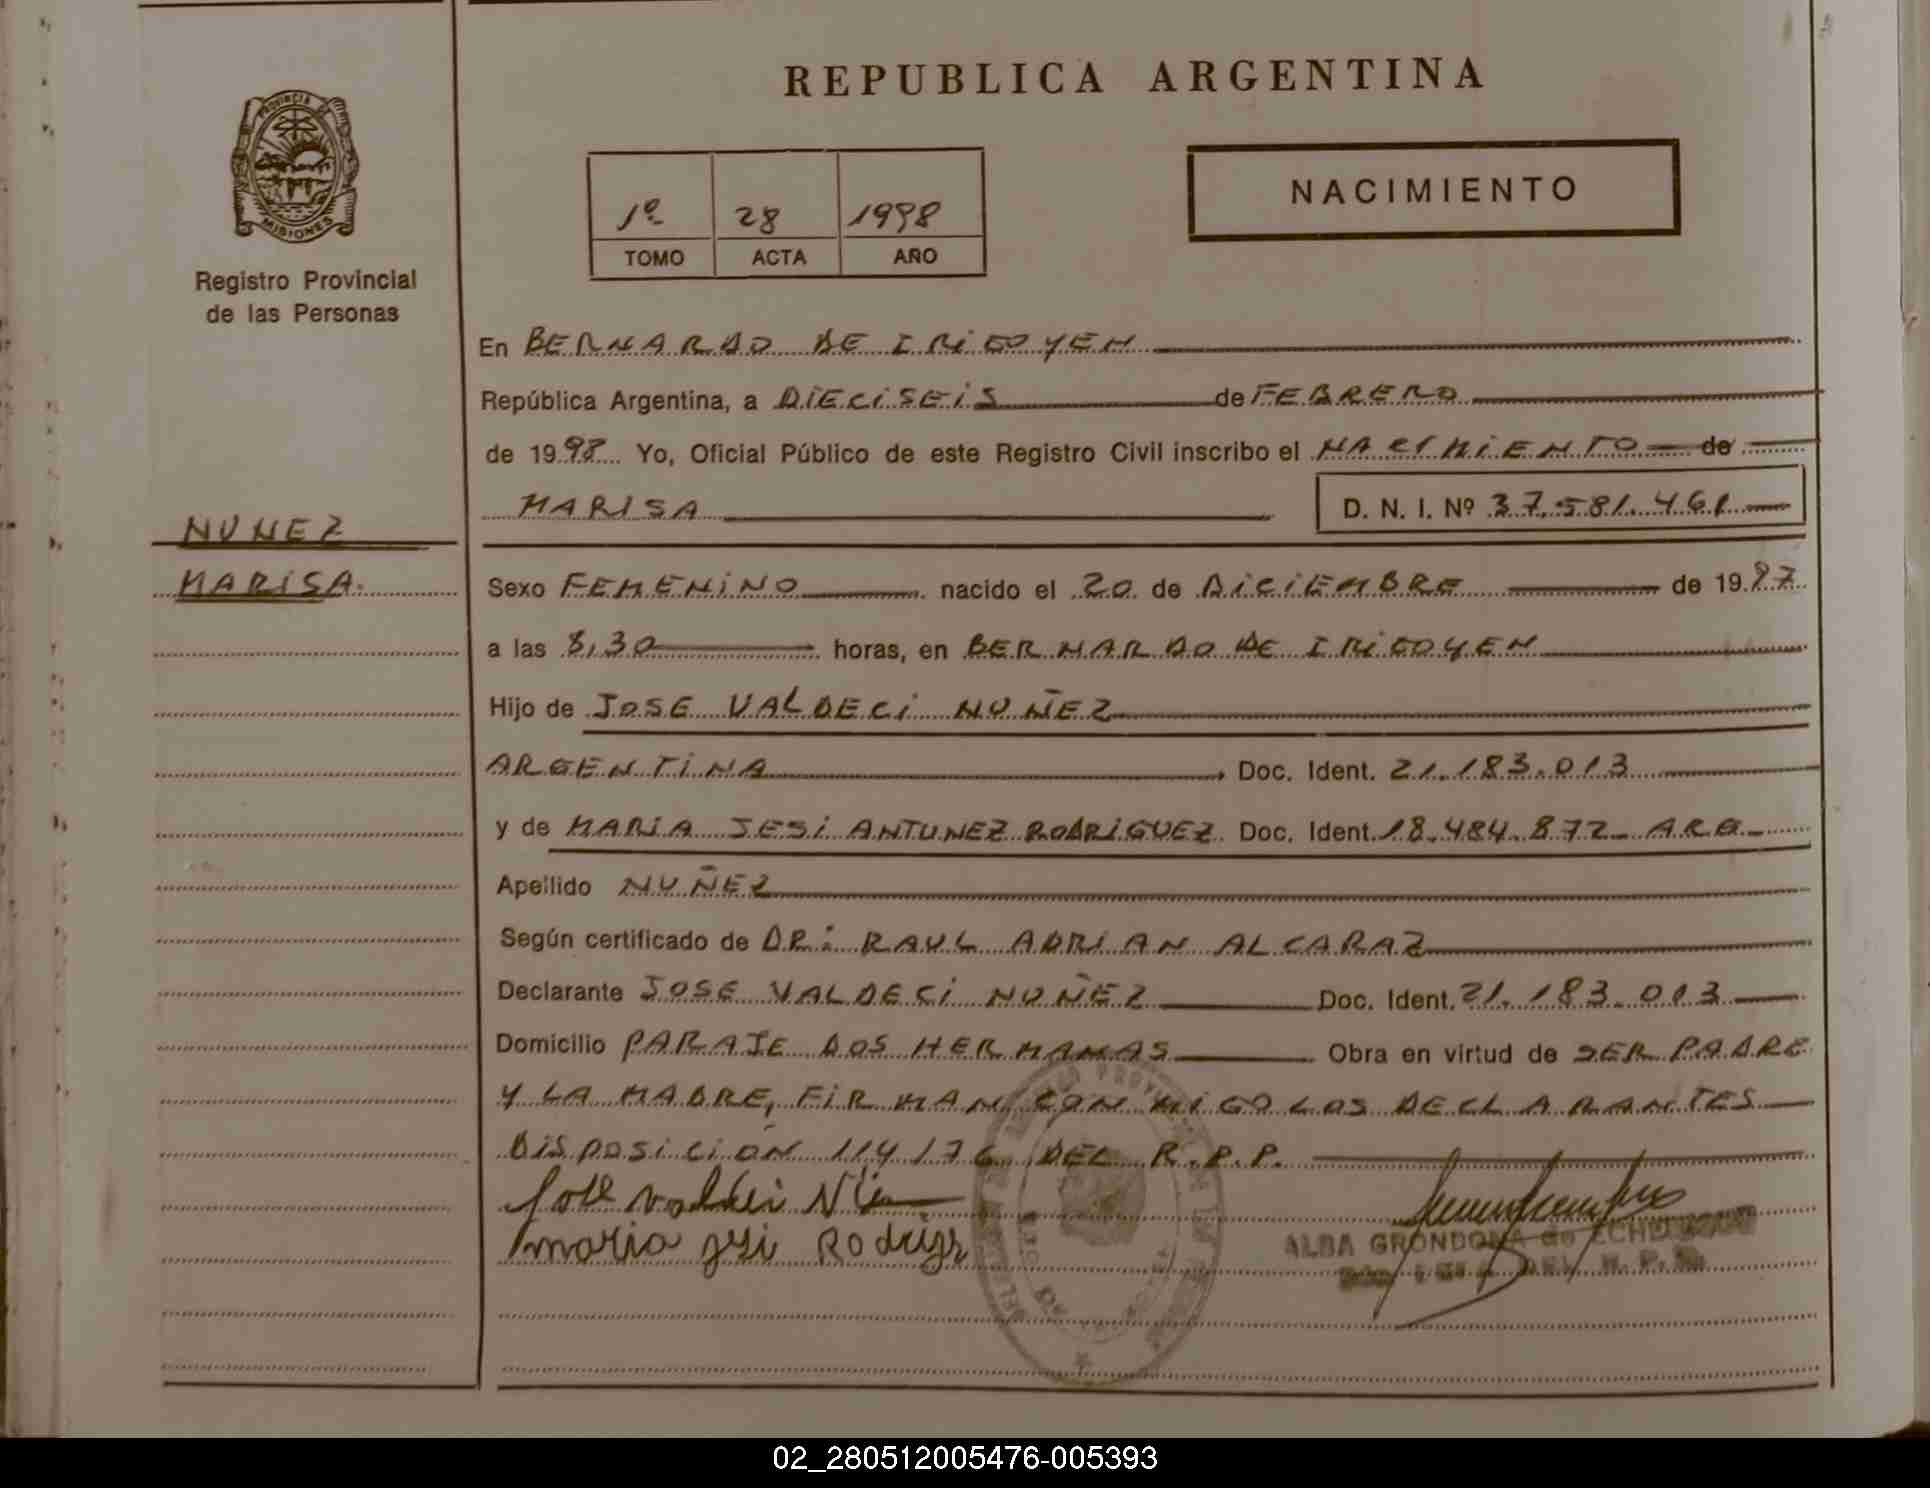 REPUBLICA ARGENTINA
PROVINCIA DE
MISIONES
Registro Provincial
de las Personas
1º 28 1998
TOMO ACTA AÑO
NACIMIENTO
En BERNARDO DE IRIGOYEN
República Argentina, a DIECISEIS de FEBRERO
de 1998 Yo, Oficial Público de este Registro Civil inscribo el NACIMIENTO de
MARISA D. N. I. Nº 37.581.461
NUNEZ
MARISA.
Sexo FEMENINO nacido el 20 de DICIEMBRE de 1997
a las 8,30 horas, en BERNARDO DE IRIGOYEN
Hijo de JOSE VALDECI NUÑEZ
ARGENTINA Doc. Ident. 21.183.013
y de MARIA JESI ANTUNEZ RODRIGUEZ Doc. Ident. 18.484.872 ARG
Apellido NUÑEZ
Según certificado de DR: RAUL ADRIAN ALCARAZ
Declarante JOSE VALDECI NUÑEZ Doc. Ident. 21.183.013
Domicilio PARAJE DOS HERMANAS Obra en virtud de SER PADRE
Y LA MADRE, FIRMAN CON MIGO LOS DECLARANTES
DISPOSICIÓN 114/76 DEL R.P.P.
Jose valdeci
maria jesi
ALBA GRONDONA de
DEL R. P. P.
02_280512005476-005393